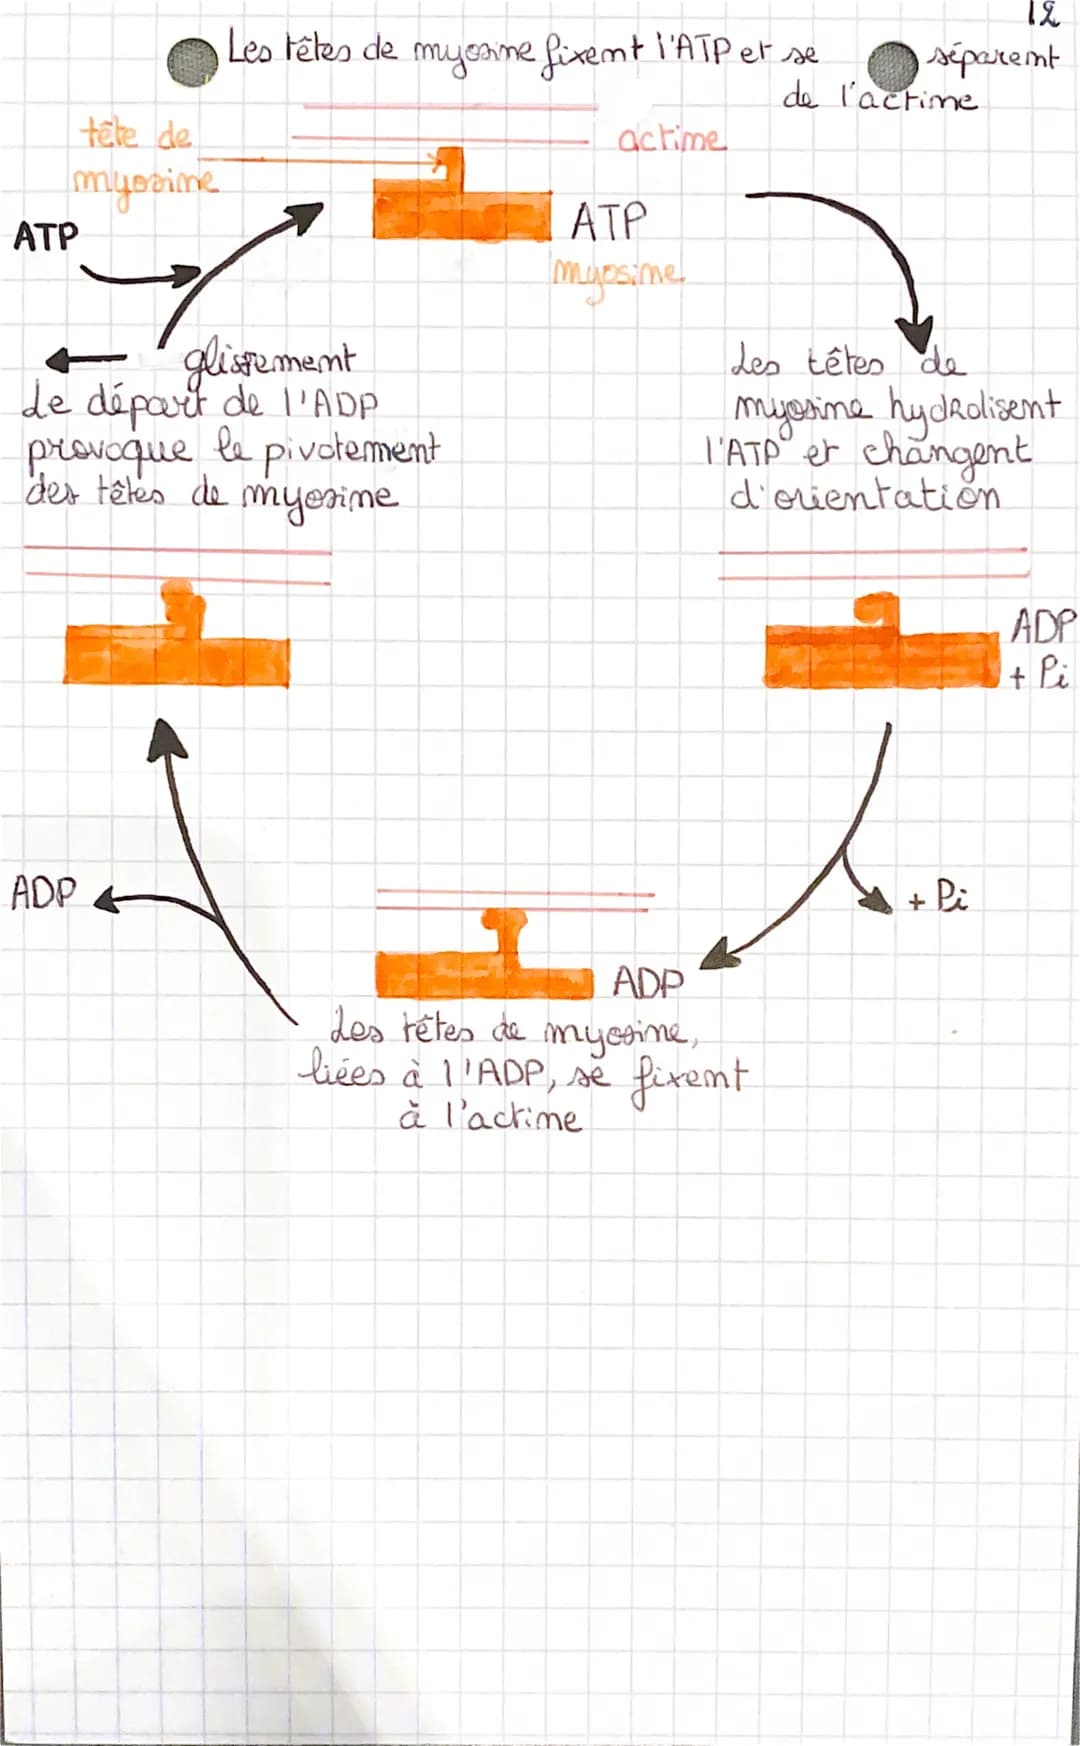 12
Les têtes de myosine fixent l'ATP et se séparent
de l'actine
tête de
myosine
actine
ATP
myosine
ATP
glissement
Le départ de l'ADP
provoque le pivotement
des têtes de myosine
Les têtes de
myosine hydrolisent
l'ATP et changent
d'orientation
ADP
+ Pi
+ Pi
ADP
ADP
Les têtes de myosine,
liées à l'ADP, se fixent
à l'actine